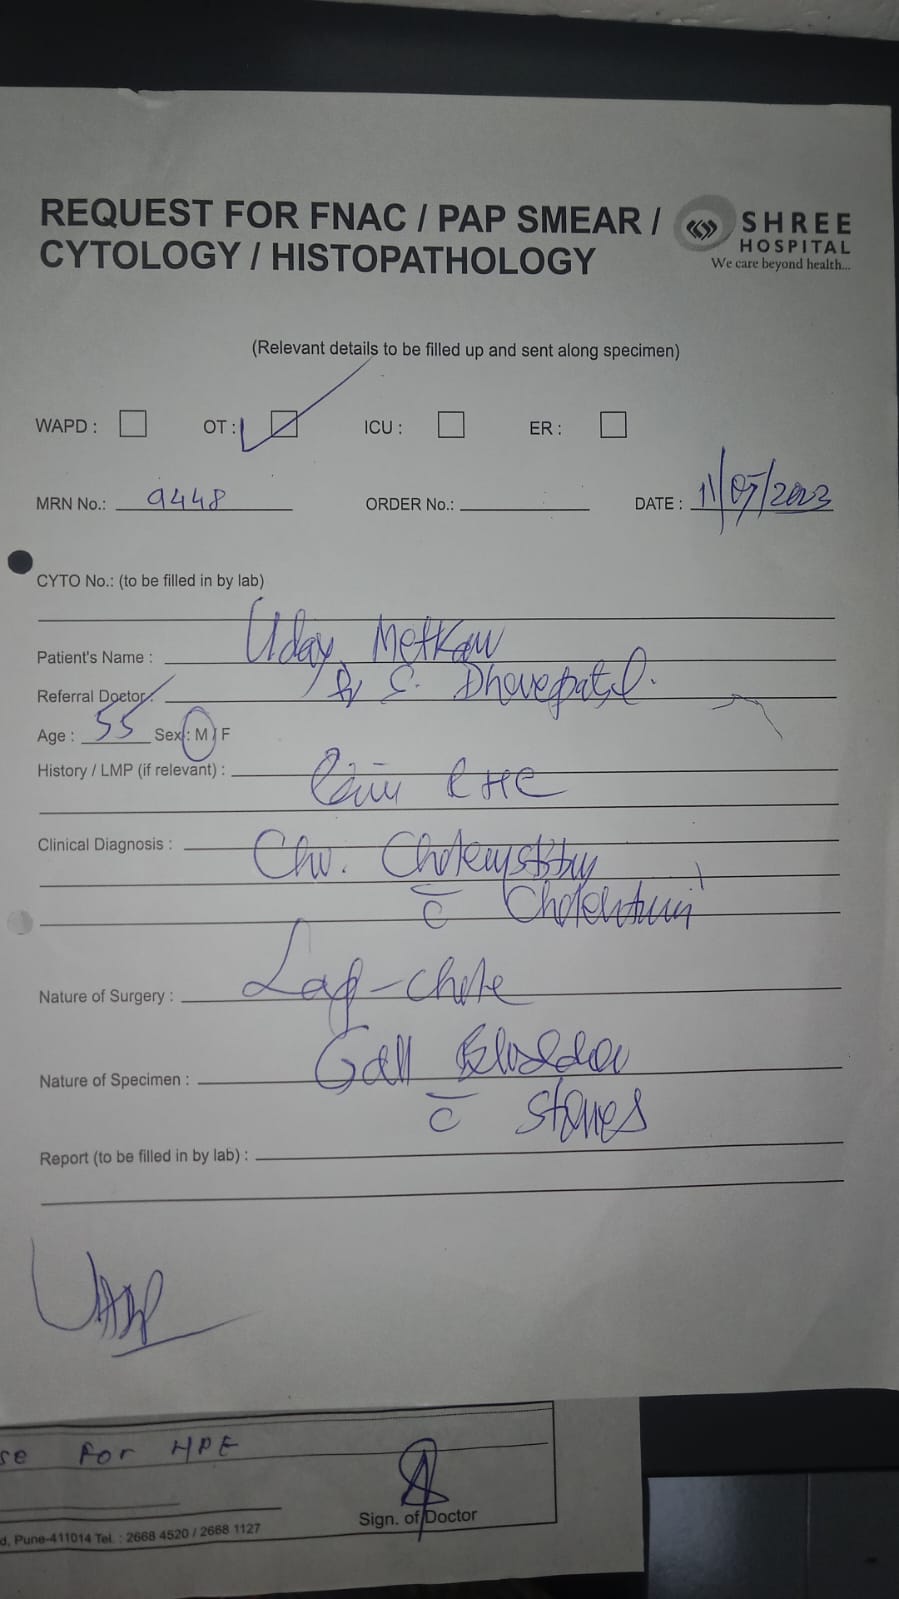 REQUEST FOR FNAC / PAP SMEAR /
CYTOLOGY / HISTOPATHOLOGY
SHREE
HOSPITAL
We care beyond health...
(Relevant details to be filled up and sent along specimen)
WAPD : OT : ICU : ER :
MRN No.: 9448 ORDER No.: DATE : 11/05/2023
CYTO No.: (to be filled in by lab)
Patient's Name : Uday Metkar
Referral Doctor: Dr S. Dhavepatil.
Age : 55 Sex : M / F
History / LMP (if relevant) : Pain RHC
Clinical Diagnosis : Cho.
c̄
Nature of Surgery : Lap-chole
Nature of Specimen : Gall Bladder
c̄ stones
Report (to be filled in by lab) :
se For HPE
Sign. of Doctor
d, Pune-411014 Tel. : 2668 4520 / 2668 1127